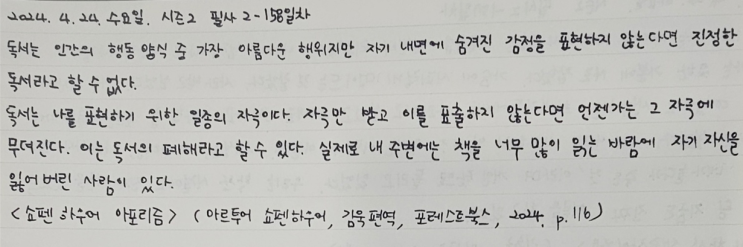 2024. 4. 24. 수요일. 시즌2 필사 2-158일차
독서는 인간의 행동 양식 중 가장 아름다운 행위지만 자기 내면에 숨겨진 감정을 표현하지 않는다면 진정한
독서라고 할 수 없다.
독서는 나를 표현하기 위한 일종의 자극이다. 자극만 받고 이를 표출하지 않는다면 언젠가는 그 자극에
무뎌진다. 이는 독서의 폐해라고 할 수 있다. 실제로 내 주변에는 책을 너무 많이 읽는 바람에 자기 자신을
잃어버린 사람이 있다.
<쇼펜하우어 아포리즘> (아르투어 쇼펜하우어, 김욱 편역, 포레스트북스, 2024. p.116)